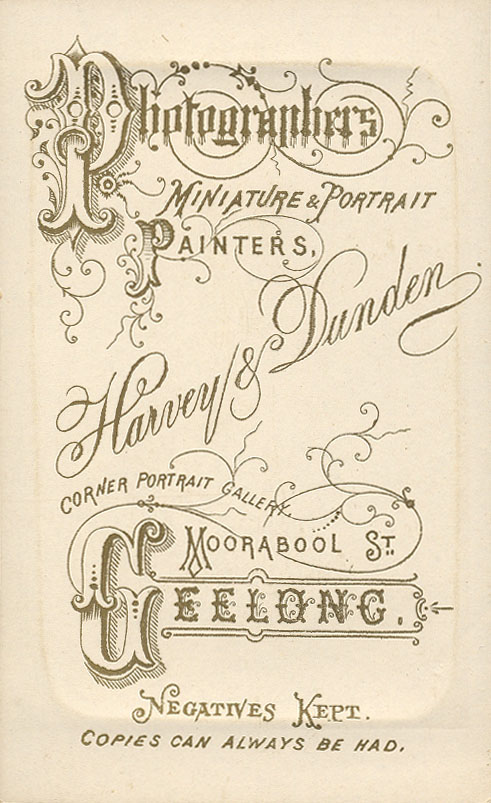 Photographers
MINIATURE & PORTRAIT
PAINTERS,
Harvey & Dunden
CORNER PORTRAIT GALLERY,
MOORABOOL ST.
GEELONG.
NEGATIVES KEPT.
COPIES CAN ALWAYS BE HAD.